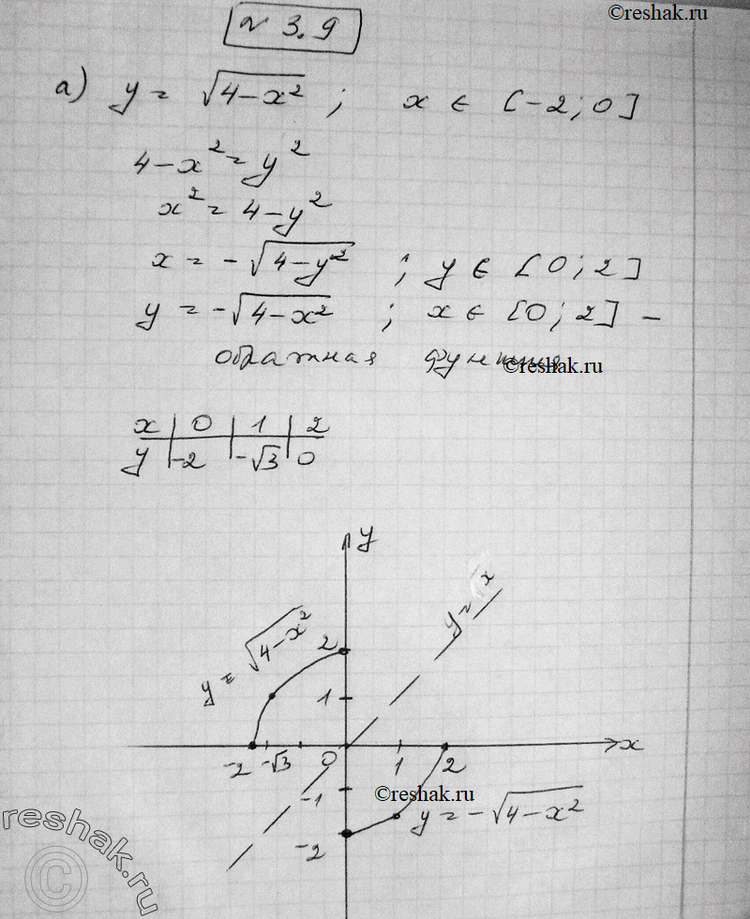 ©reshak.ru
№ 3.9
а) y = √(4-x²) ; x ∈ [-2; 0]
4-x² = y²
x² = 4-y²
x = -√(4-y²) ; y ∈ [0; 2]
y = -√(4-x²) ; x ∈ [0; 2] -
обратная функция
©reshak.ru
x | 0 | 1 | 2
y | -2 | -√3 | 0
y
y = √(4-x²)
y = x
2
1
-2 -√3 0 1 2 x
-1
©reshak.ru
y = -√(4-x²)
-2
reshak.ru
©